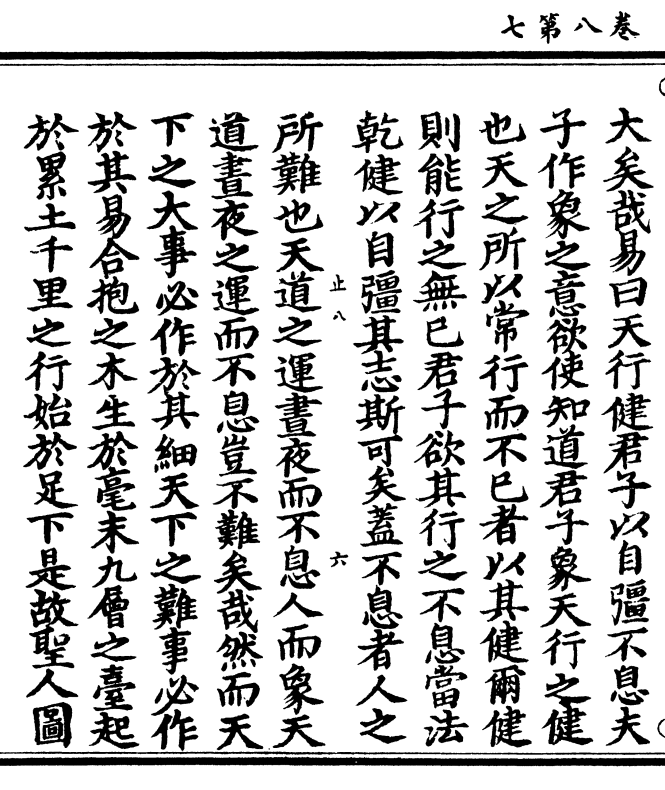 卷八第七
大矣哉易曰天行健君子以自彊不息夫
子作象之意欲使知道君子象天行之健
也天之所以常行而不已者以其健爾健
則能行之無已君子欲其行之不息當法
乾健以自彊其志斯可矣蓋不息者人之
止八
六
所難也天道之運晝夜而不息人而象天
道晝夜之運而不息豈不難矣哉然而天
下之大事必作於其細天下之難事必作
於其易合抱之木生於毫末九層之臺起
於累土千里之行始於足下是故聖人圖